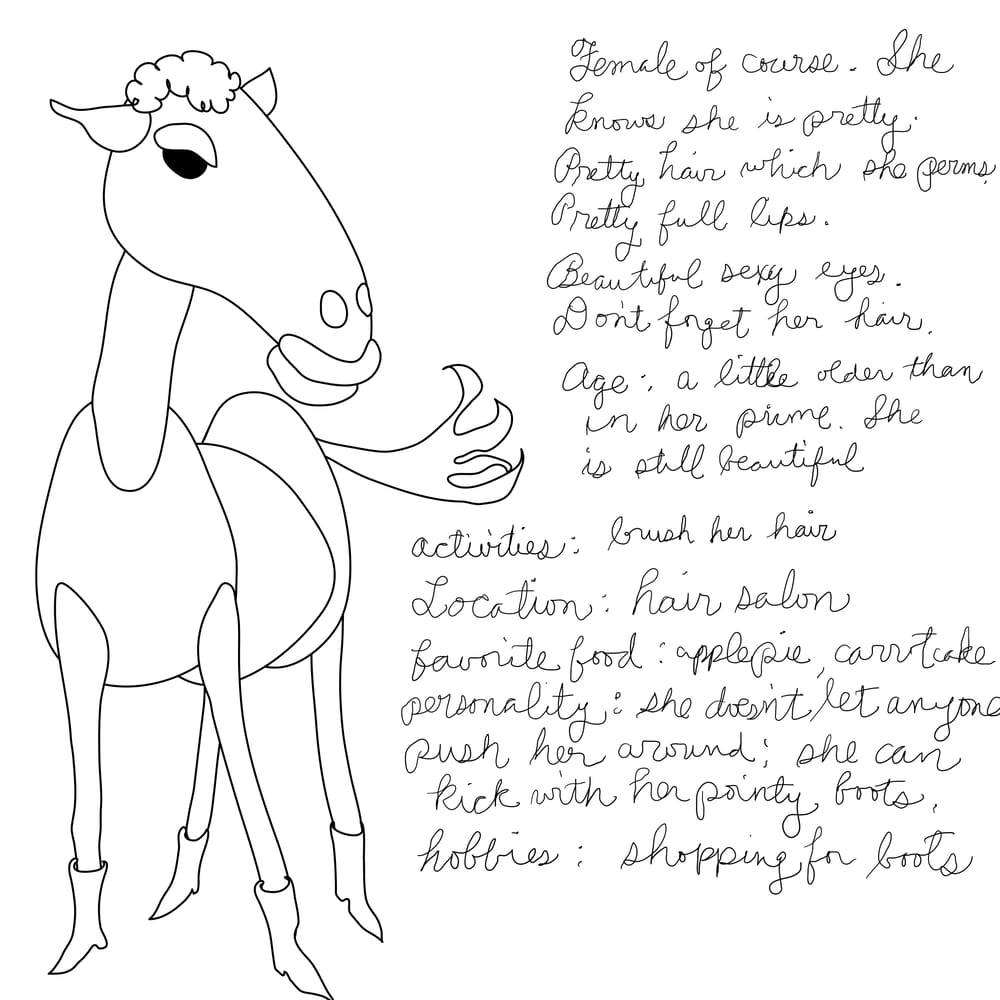 Female of course. She
knows she is pretty.
Pretty hair which she perms.
Pretty full lips.
Beautiful sexy eyes.
Don't forget her hair.
Age: a little older than
in her prime. She
is still beautiful
activities: brush her hair
Location: hair salon
favorite food: applepie, carrotcake
personality: she doesn't let anyone
push her around; she can
kick with her pointy boots.
hobbies: shopping for boots